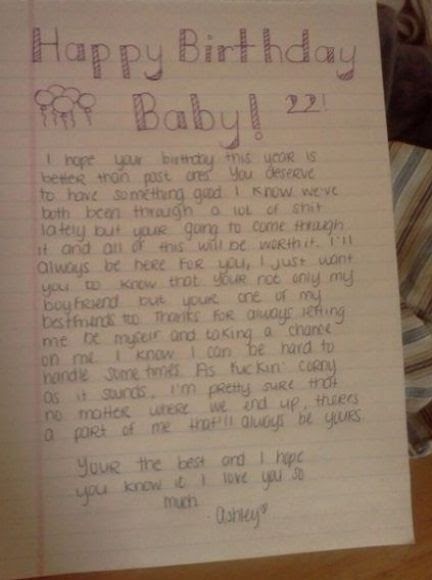 Happy Birthday
Baby! 22!
I hope your birthday this year is
better than past ones You deserve
to have something good I know we've
both been through a lot of shit
lately but your going to come through
it and all of this will be worth it. I'll
always be here for you, I just want
you to know that your not only my
boyfriend but your one of my
bestfriends too Thanks for always letting
me be myself and taking a chance
on me I know I can be hard to
handle sometimes. As fuckin' corny
as it sounds, I'm pretty sure that
no matter where we end up, theres
a part of me that'll always be yours.
Your the best and I hope
you know it I love you so
much
- Ashley